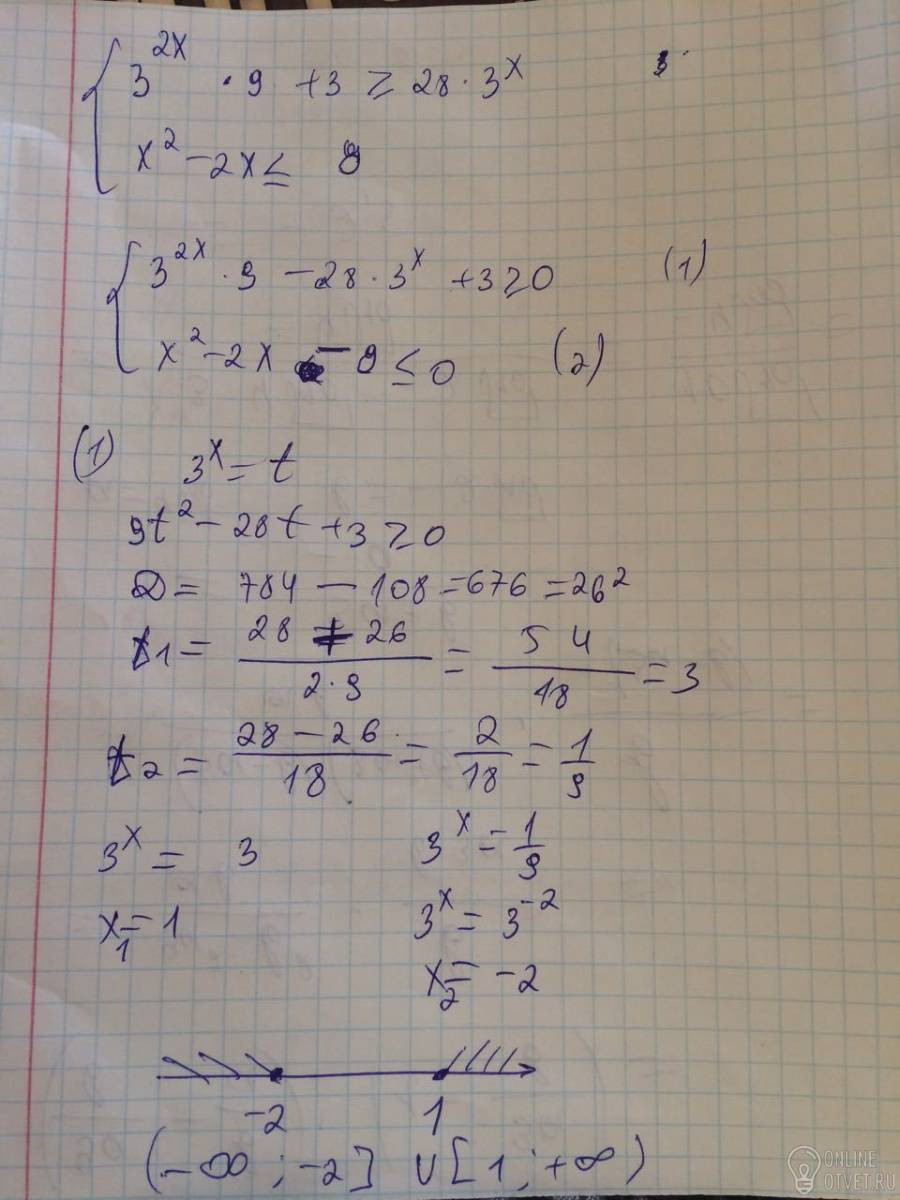 3^{2x} · 9 + 3 ≥ 28 · 3^x
x² - 2x ≤ 8
3^{2x} · 9 - 28 · 3^x + 3 ≥ 0 (1)
x² - 2x - 8 ≤ 0 (2)
(1) 3^x = t
9t² - 28t + 3 ≥ 0
D = 784 - 108 = 676 = 26²
t₁ = (28 + 26)/(2·9) = 54/18 = 3
t₂ = (28 - 26)/18 = 2/18 = 1/9
3^x = 3 3^x = 1/9
x₁ = 1 3^x = 3^{-2}
x₂ = -2
-2 1
(-∞; -2] ∪ [1; +∞)
ONLINE
OTVET.RU